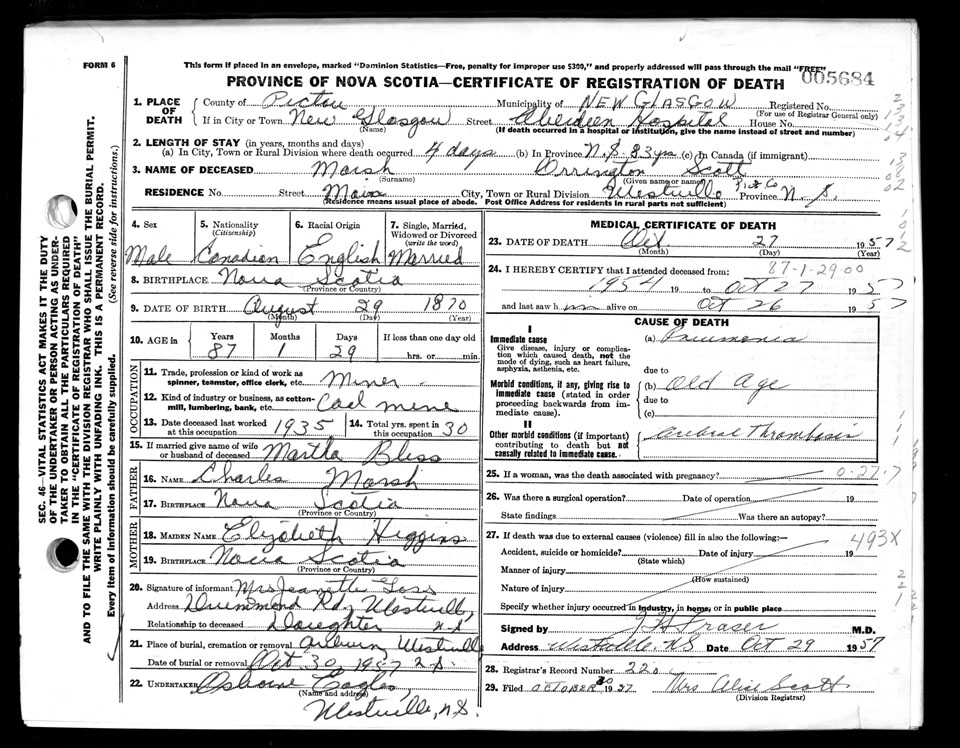 FORM 6
This form if placed in an envelope, marked "Dominion Statistics—Free, penalty for improper use $300," and properly addressed will pass through the mail "FREE"
PROVINCE OF NOVA SCOTIA—CERTIFICATE OF REGISTRATION OF DEATH
005684
1. PLACE OF DEATH
County of Pictou Municipality of NEW GLASGOW Registered No.
(For use of Registrar General only)
If in City or Town New Glasgow Street Aberdeen Hospital House No.
(Name) (If death occurred in a hospital or institution, give the name instead of street and number)
2. LENGTH OF STAY (in years, months and days)
(a) In City, Town or Rural Division where death occurred 4 days (b) In Province N.S. 83 yrs (c) In Canada (if immigrant)
3. NAME OF DECEASED Marsh Orrington Scott
(Surname) (Given name or names)
RESIDENCE No. Street Main City, Town or Rural Division Westville Pict Co Province N.S.
(Residence means usual place of abode. Post Office Address for residents in rural parts not sufficient)
4. Sex 5. Nationality (Citizenship) 6. Racial Origin 7. Single, Married, Widowed or Divorced (write the word)
Male Canadian English Married
8. BIRTHPLACE Nova Scotia
(Province or Country)
9. DATE OF BIRTH August 29 1870
(Month) (Day) (Year)
10. AGE in Years Months Days If less than one day old
87 1 29 hrs. or min.
OCCUPATION
11. Trade, profession or kind of work as spinner, teamster, office clerk, etc. Miner
12. Kind of industry or business, as cotton-mill, lumbering, bank, etc. Coal mine
13. Date deceased last worked at this occupation 1935 14. Total yrs. spent in this occupation 30
15. If married give name of wife or husband of deceased Martha Bliss
FATHER
16. NAME Charles Marsh
17. BIRTHPLACE Nova Scotia
(Province or Country)
MOTHER
18. MAIDEN NAME Elizabeth Higgins
19. BIRTHPLACE Nova Scotia
(Province or Country)
20. Signature of informant Mrs Jeanette
Address Drummond Rd, Westville,
Relationship to deceased Daughter N.S.
21. Place of burial, cremation or removal Auburn, Westville
Date of burial or removal Oct 30, 1957 N.S.
22. UNDERTAKER Osborne Eagles,
(Name and address)
Westville, N.S.
MEDICAL CERTIFICATE OF DEATH
23. DATE OF DEATH Oct 27 1957
(Month) (Day) (Year)
24. I HEREBY CERTIFY that I attended deceased from: 87-1-29 00
1954 19 to Oct 27 1957
and last saw h im alive on Oct 26 1957
CAUSE OF DEATH
I
Immediate cause
Give disease, injury or complication which caused death, not the mode of dying, such as heart failure, asphyxia, asthenia, etc.
(a) Pneumonia
due to
Morbid conditions, if any, giving rise to immediate cause (stated in order proceeding backwards from immediate cause).
(b) Old Age
due to
(c)
II
Other morbid conditions (if important) contributing to death but not causally related to immediate cause.
Cerebral Thrombosis
25. If a woman, was the death associated with pregnancy? 0-27-7
26. Was there a surgical operation? Date of operation 19
State findings Was there an autopsy?
27. If death was due to external causes (violence) fill in also the following:— 493X
Accident, suicide or homicide? Date of injury 19
(State which)
Manner of injury
(How sustained)
Nature of injury
Specify whether injury occurred in industry, in home, or in public place
Signed by Fraser M.D.
Address Westville, N.S. Date Oct 29 1957
28. Registrar's Record Number 220
29. Filed OCTOBER 30 1957 Mrs Alice Scott
(Division Registrar)
SEC. 46—VITAL STATISTICS ACT MAKES IT THE DUTY
OF THE UNDERTAKER OR PERSON ACTING AS UNDER-
TAKER TO OBTAIN ALL THE PARTICULARS REQUIRED
IN THE "CERTIFICATE OF REGISTRATION OF DEATH"
AND TO FILE THE SAME WITH THE DIVISION REGISTRAR WHO SHALL ISSUE THE BURIAL PERMIT.
WRITE PLAINLY WITH UNFADING INK. THIS IS A PERMANENT RECORD.
Every item of information should be carefully supplied. (See reverse side for instructions.)